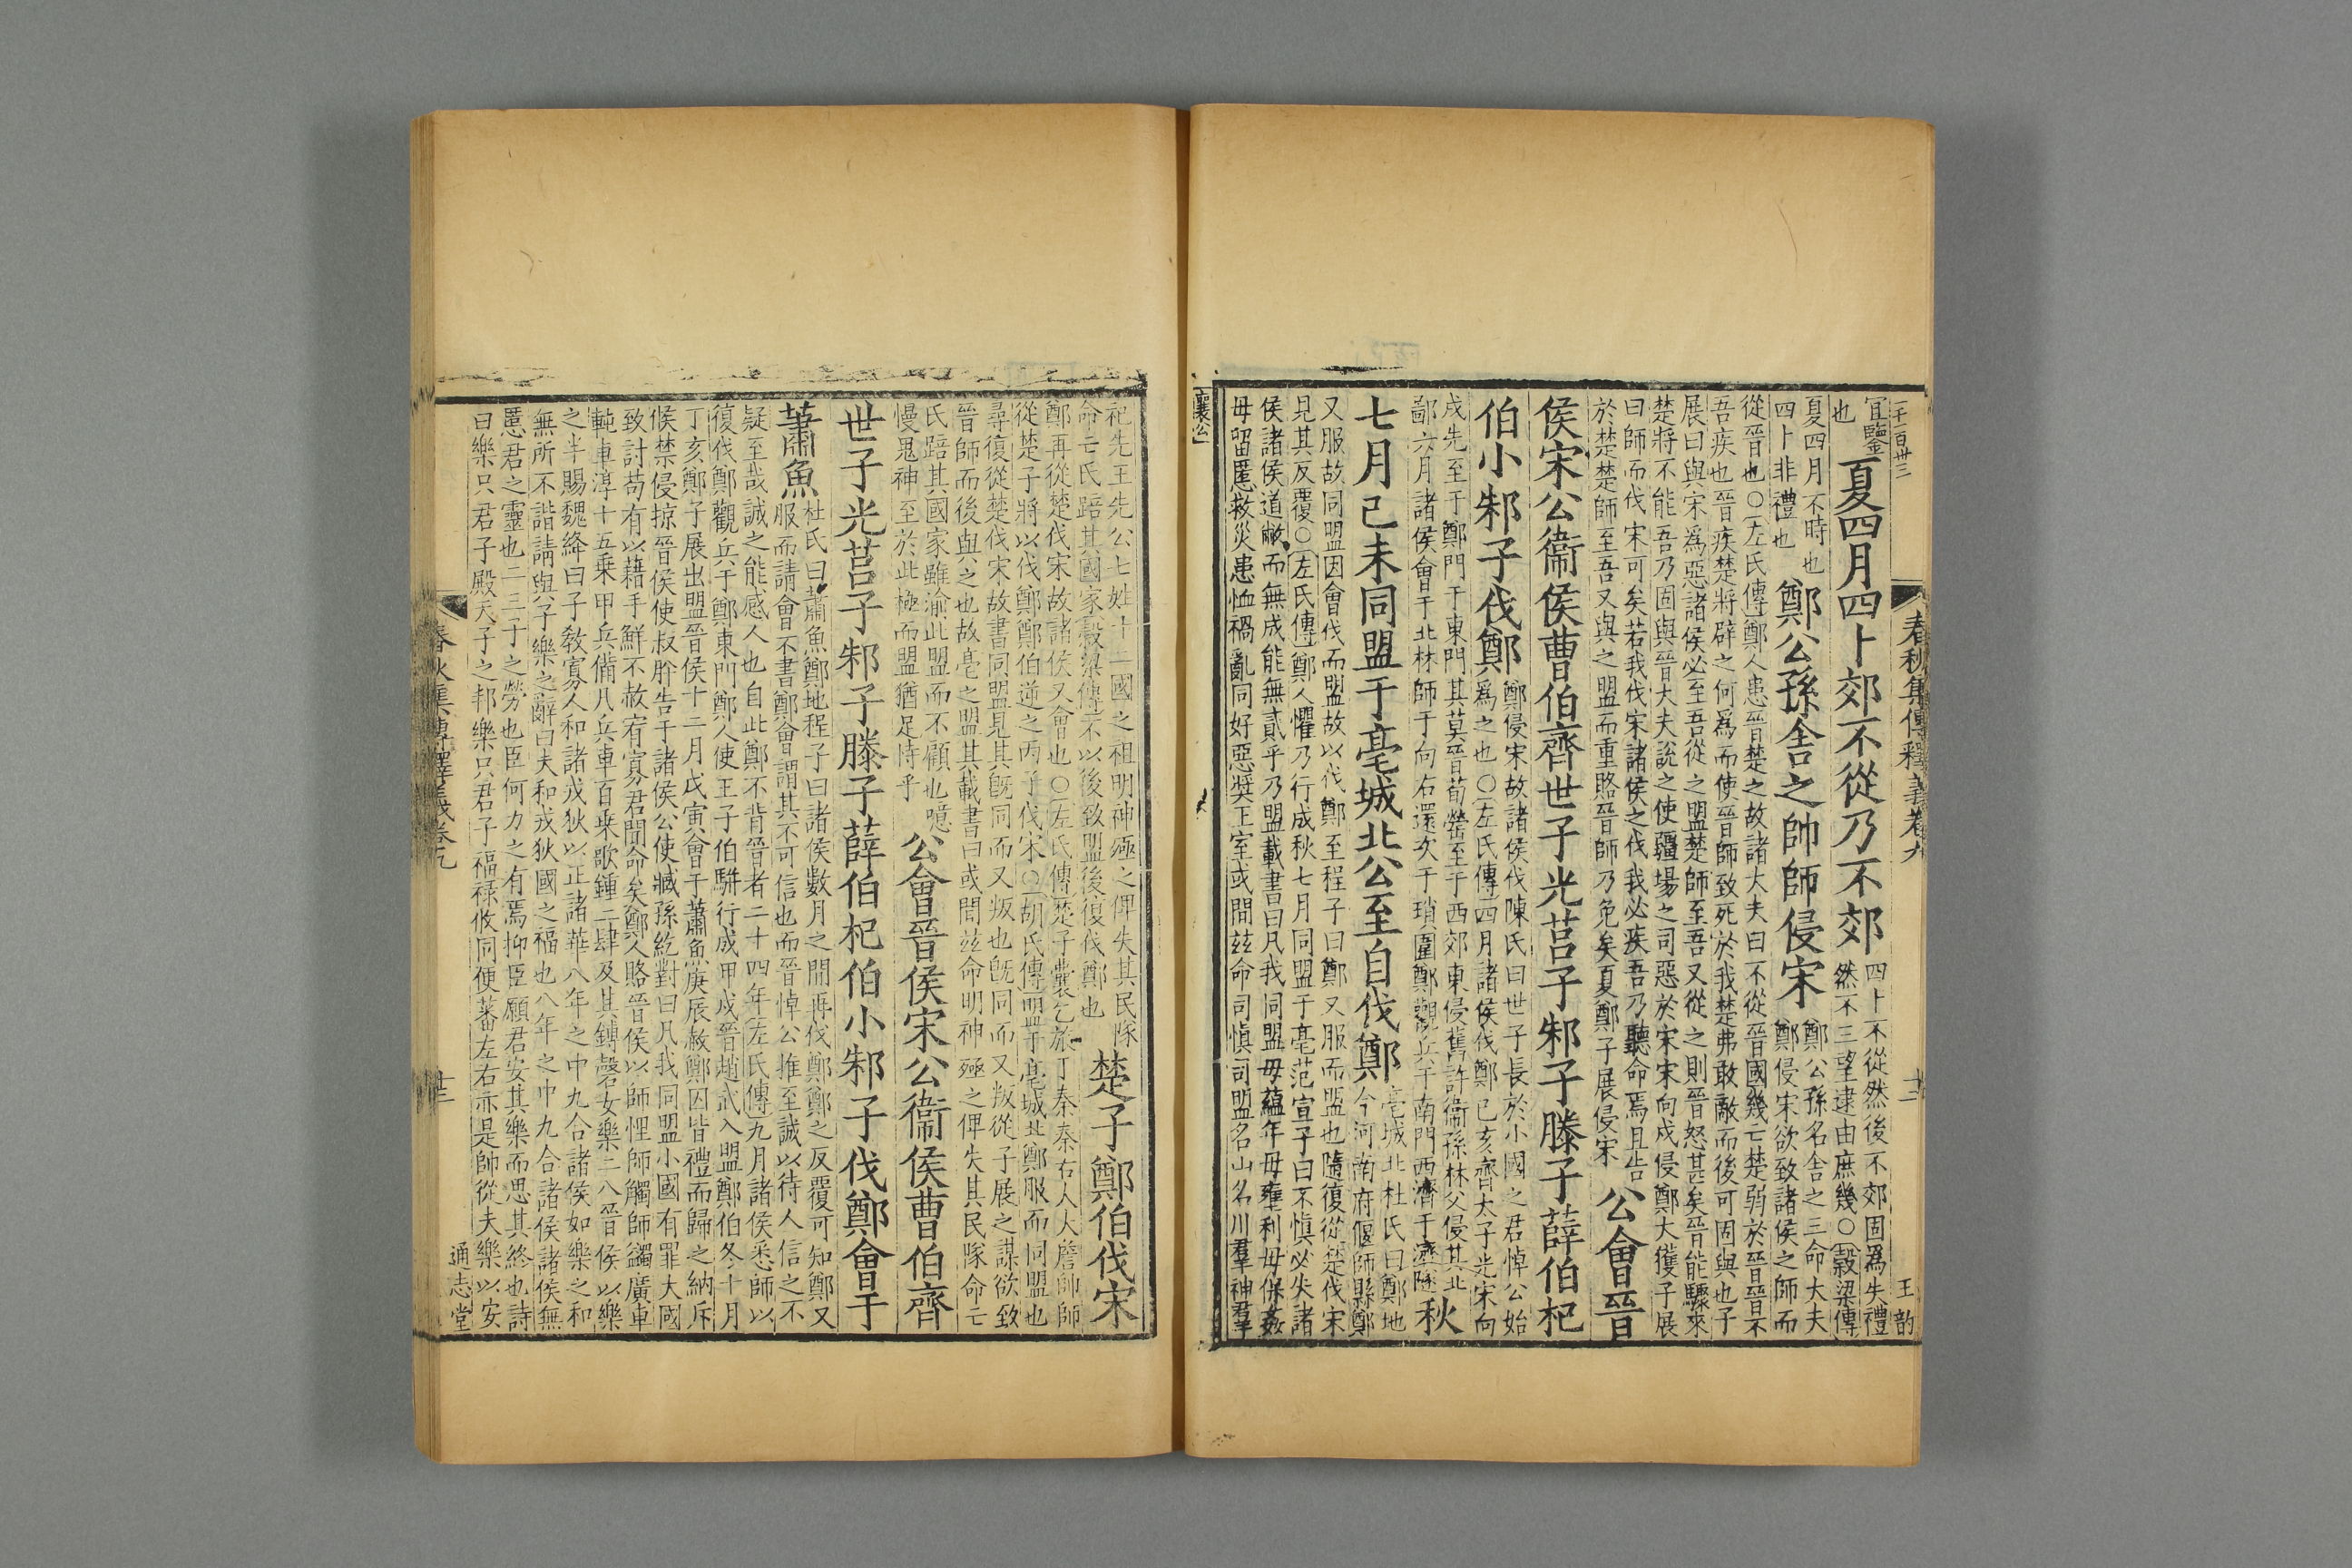 春秋集傳釋義卷九
十二
王韵
宜鑒
也
夏四月四卜郊不從乃不郊
四卜不從然後不郊固爲失禮
然不三望逮由庶幾○穀梁傳
夏四月不時也
四卜非禮也
鄭公孫舍之帥師侵宋
鄭公孫名舍之三命大夫
鄭侵宋欲致諸侯之師而
從晉也○左氏傳鄭人患晉楚之故諸大夫曰不從晉國幾亡楚弱於晉晉不
吾疾也晉疾楚將辟之何爲而使晉師致死於我楚弗敢敵而後可固與也子
展曰與宋爲惡諸侯必至吾從之盟楚師至吾又從之則晉怒甚矣晉能驟來
楚將不能吾乃固與晉大夫說之使疆埸之司惡於宋宋向戌侵鄭大獲子展
曰師而伐宋可矣若我伐宋諸侯之伐我必疾吾乃聽命焉且告
於楚楚師至吾又與之盟而重賂晉師乃免矣夏鄭子展侵宋
公會晉
侯宋公衞侯曹伯齊世子光莒子邾子滕子薛伯杞
伯小邾子伐鄭
鄭侵宋故諸侯伐陳氏曰世子長於小國之君悼公始
爲之也○左氏傳四月諸侯伐鄭己亥齊太子光宋向
戌先至于鄭門于東門其莫晉荀罃至于西郊東侵舊許衞孫林父侵其北
鄙六月諸侯會于北林師于向右還次于瑣圍鄭觀兵于南門西濟于濟隧
秋
七月己未同盟于亳城北公至自伐鄭
亳城北杜氏曰鄭地
今河南府偃師縣鄭
又服故同盟因會伐而盟故以伐鄭至程子曰鄭又服而盟也隨復從楚伐宋
見其反覆○左氏傳鄭人懼乃行成秋七月同盟于亳范宣子曰不愼必失諸
侯諸侯道敝而無成能無貳乎乃盟載書曰凡我同盟毋蘊年毋壅利毋保姦
毋留慝救災患恤禍亂同好惡奬王室或間茲命司愼司盟名山名川羣神羣
襄公
祀先王先公七姓十二國之祖明神殛之俾失其民隊
命亡氏踣其國家穀梁傳不以後致盟後復伐鄭也
楚子鄭伯伐宋
鄭再從楚伐宋故諸侯又會也○左氏傳楚子囊乞旅于秦秦右大夫詹帥師
從楚子將以伐鄭鄭伯逆之丙子伐宋○胡氏傳盟于亳城北鄭服而同盟也
尋復從楚伐宋故書同盟見其旣同而又叛也旣同而又叛從子展之謀欲致
晉師而後與之也故亳之盟其載書曰或間茲命明神殛之俾失其民隊命亡
氏踣其國家雖渝此盟而不顧也噫
慢鬼神至於此極而盟猶足恃乎
公會晉侯宋公衞侯曹伯齊
世子光莒子邾子滕子薛伯杞伯小邾子伐鄭會于
蕭魚
杜氏曰蕭魚鄭地程子曰諸侯數月之間再伐鄭鄭之反覆可知鄭又
服而請會不書鄭會謂其不可信也而晉悼公推至誠以待人信之不
疑至哉誠之能感人也自此鄭不背晉者二十四年左氏傳九月諸侯悉師以
復伐鄭觀兵于鄭東門鄭人使王子伯騈行成甲戌晉趙武入盟鄭伯冬十月
丁亥鄭子展出盟晉侯十二月戊寅會于蕭魚庚辰赦鄭囚皆禮而歸之納斥
候禁侵掠晉侯使叔肸告于諸侯公使臧孫紇對曰凡我同盟小國有罪大國
致討苟有以藉手鮮不赦宥寡君聞命矣鄭人賂晉侯以師悝師觸師蠲廣車
軘車淳十五乘甲兵備凡兵車百乘歌鍾二肆及其鎛磬女樂二八晉侯以樂
之半賜魏絳曰子敎寡人和諸戎狄以正諸華八年之中九合諸侯如樂之和
無所不諧請與子樂之辭曰夫和戎狄國之福也八年之中九合諸侯諸侯無
慝君之靈也二三子之勞也臣何力之有焉抑臣願君安其樂而思其終也詩
曰樂只君子殿天子之邦樂只君子福祿攸同便蕃左右亦是帥從夫樂以安
春秋集傳釋義卷九
通志堂